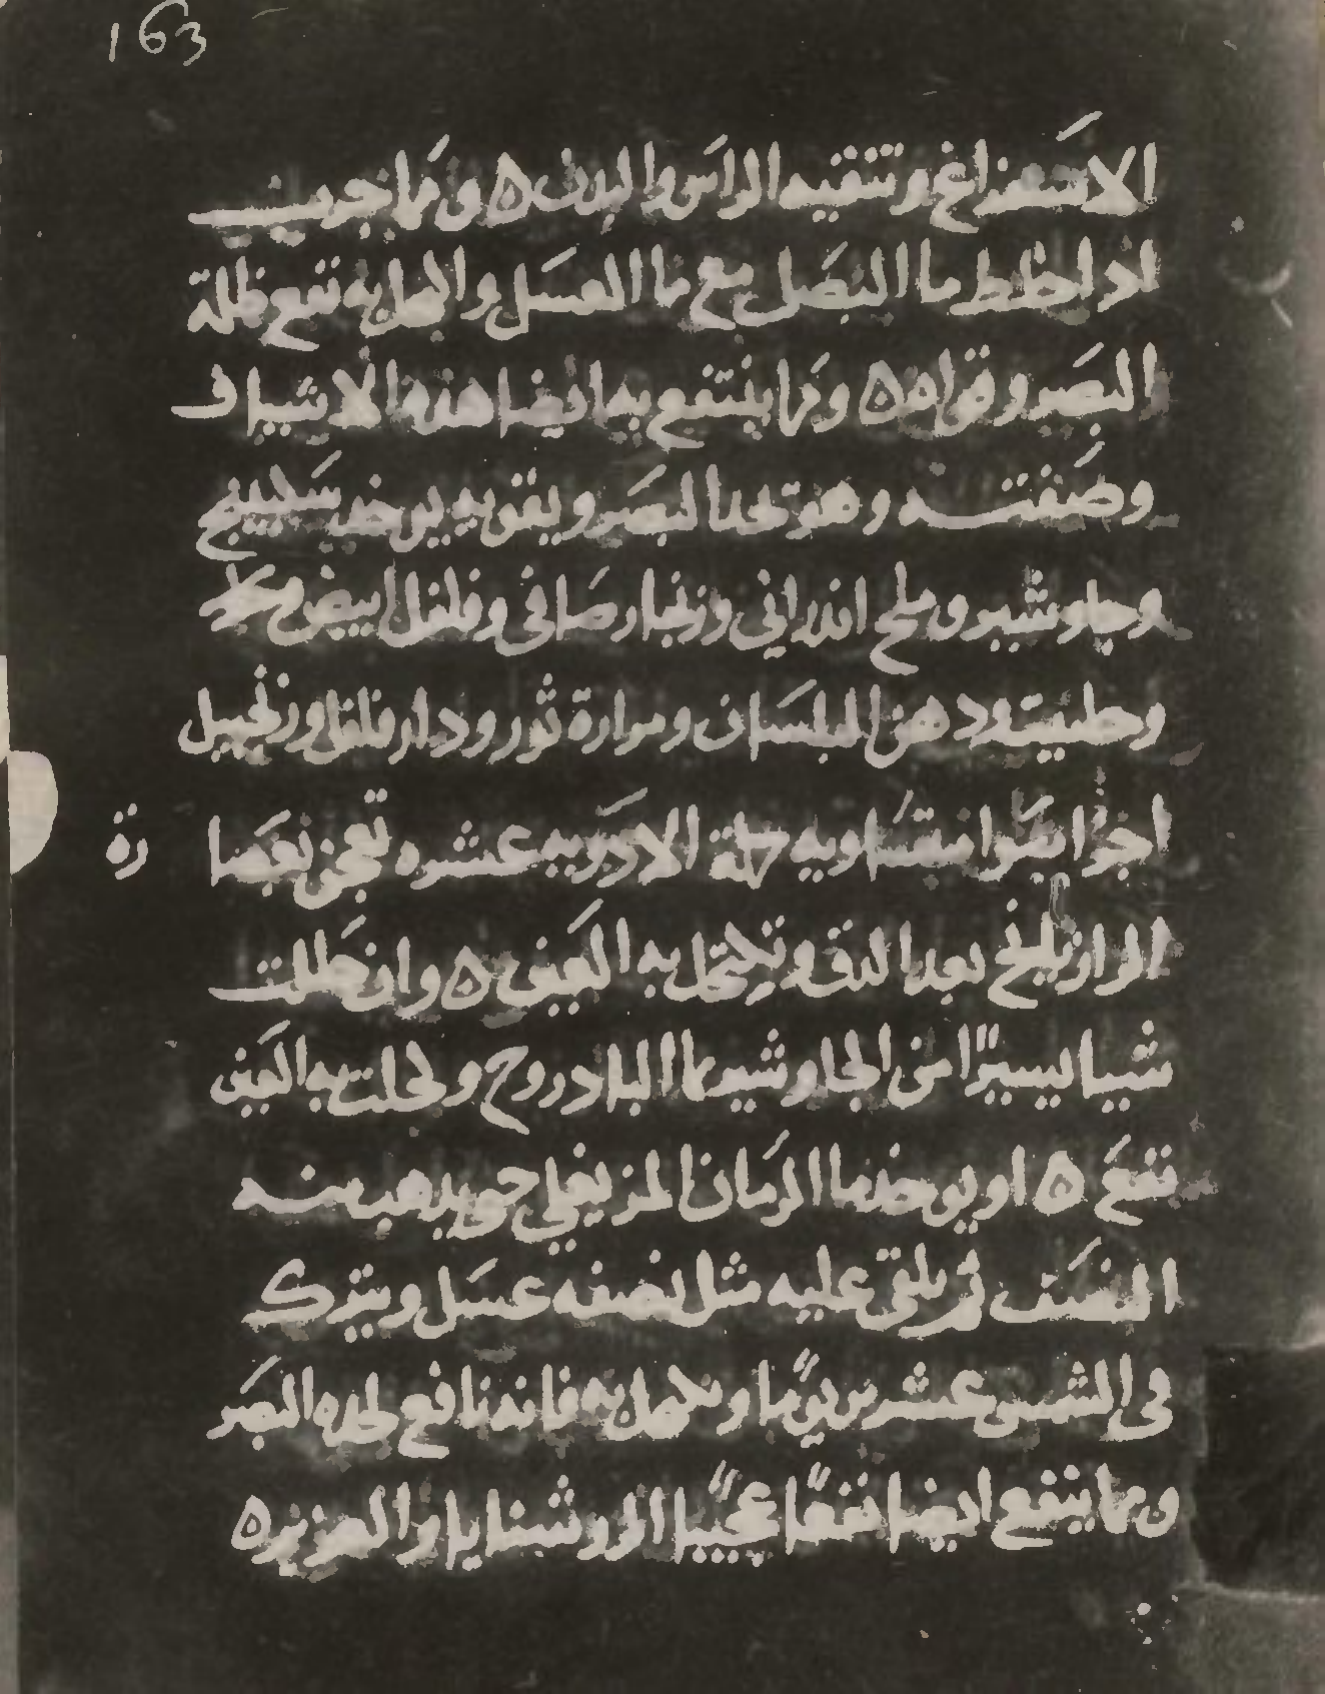 163
الاستفراغ وتنقيه الراس والبدن ٥ ومما جربته
اذا خلط ما البصل مع ما العسل واكتحل به نفع ظلمة
البصر وقواه ٥ ومما ينتفع به ايضا هذه الاشياف
وصفته وهو تحد البصر ويقويه يوخذ سكبينج
وجاوشير وملح اندراني وزنجار صافي وفلفل ابيض
وحلتيت ودهن البلسان ومرارة ثور ودار فلفل وزنجبيل
اجزا سوا متساويه جملة الادويه عشره تعجن بعصا
رة
الرازيانج بعد الدق وتكتحل به العين ٥ وان حللت
شيا يسيرًا من الجاوشير بما البادروج وكحلت به العين
نفع ٥ او يوخذ ما الرمان المز يغلي حتي يذهب منه
النصف ثم يلقى عليه مثل نصفه عسل ويترك
في الشمس عشرين يومًا وتكحل به فانه نافع لحده البصر
ومما ينفع ايضا نفعًا عجيبًا الروشنايا والعزيز ٥